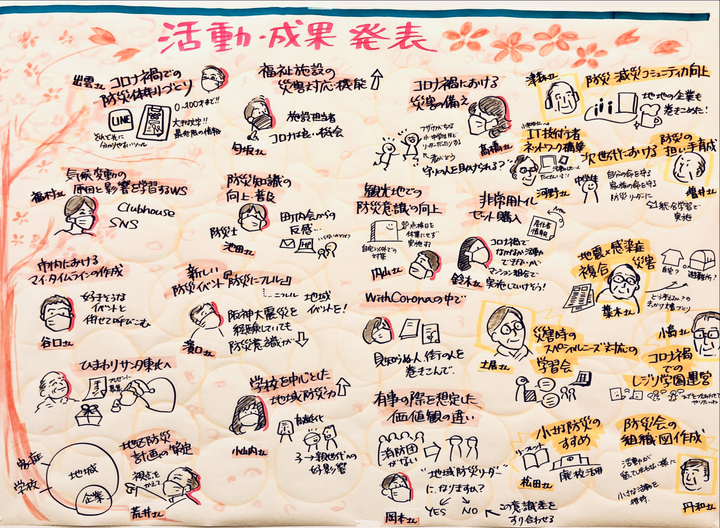 活動・成果発表
出雲さん
コロナ禍での
防災体制づくり
LINE
0→200才まで!!
それぞれに
分かりやすいツール
福祉施設の
災害対応機能↑
施設担当者
コロナは良い機会
匂坂さん
コロナ禍における
災害の備え
高橋さん
守りの人を助けられる?
防災・減災コミュニティ力向上
地地の企業も
巻きこめた!
IT技術者
ネットワーク構築
河野さん
次世代における
防災の
担い手育成
中学生
自分の命を守る
家族の命を守る
防災リーダーに
総合学習で
実施
増村さん
福村さん
気候変動の
原因と影響を学習するWS
Clubhouse
SNS
防災知識の
向上・普及
防災士
池田さん
町内会からの
反感…
観光地での
防災意識の向上
円山さん
非常用トイレ
セット購入
居住者
情報
コロナ禍で
なかなか活動が
できないが
マンション組合で
実施していけそう!
鈴木さん
地震×感染症
複合災害
葉木さん
自宅?
避難所?
市内における
マイ・タイムラインの作成
好きそうな
イベントと
併せて呼びこむ
谷口さん
新しい
防災イベント『防災にフルル』
地域
イベントを!
阪神大震災を
経験していても
防災意識が↓
濱口さん
With Coronaの中で
見知らぬ人、街の人を
巻きこんで、
土居さん
災害時の
スペシャルニーズ対応の
学習会
小島さん
コロナ禍での
レジリ学園運営
ひまわりサンタ東北へ
学校を中心とした
地域防災力↑
小山内さん
3→親世代への
好影響
有事の際を想定した
価値観の違い
消防団
がない
"地域防災リーダー"
になりますか?
YES NO
この意識差を
すり合わせる
岡本さん
小さな防災の
すすめ
リーフレット
廃校活用
松田さん
防災会の
組織図作成
活動が
小さな活動を
維持
丹和さん
地区防災
計画の策定
家庭
学校
地域
企業
視点を
かえて
荒井さん